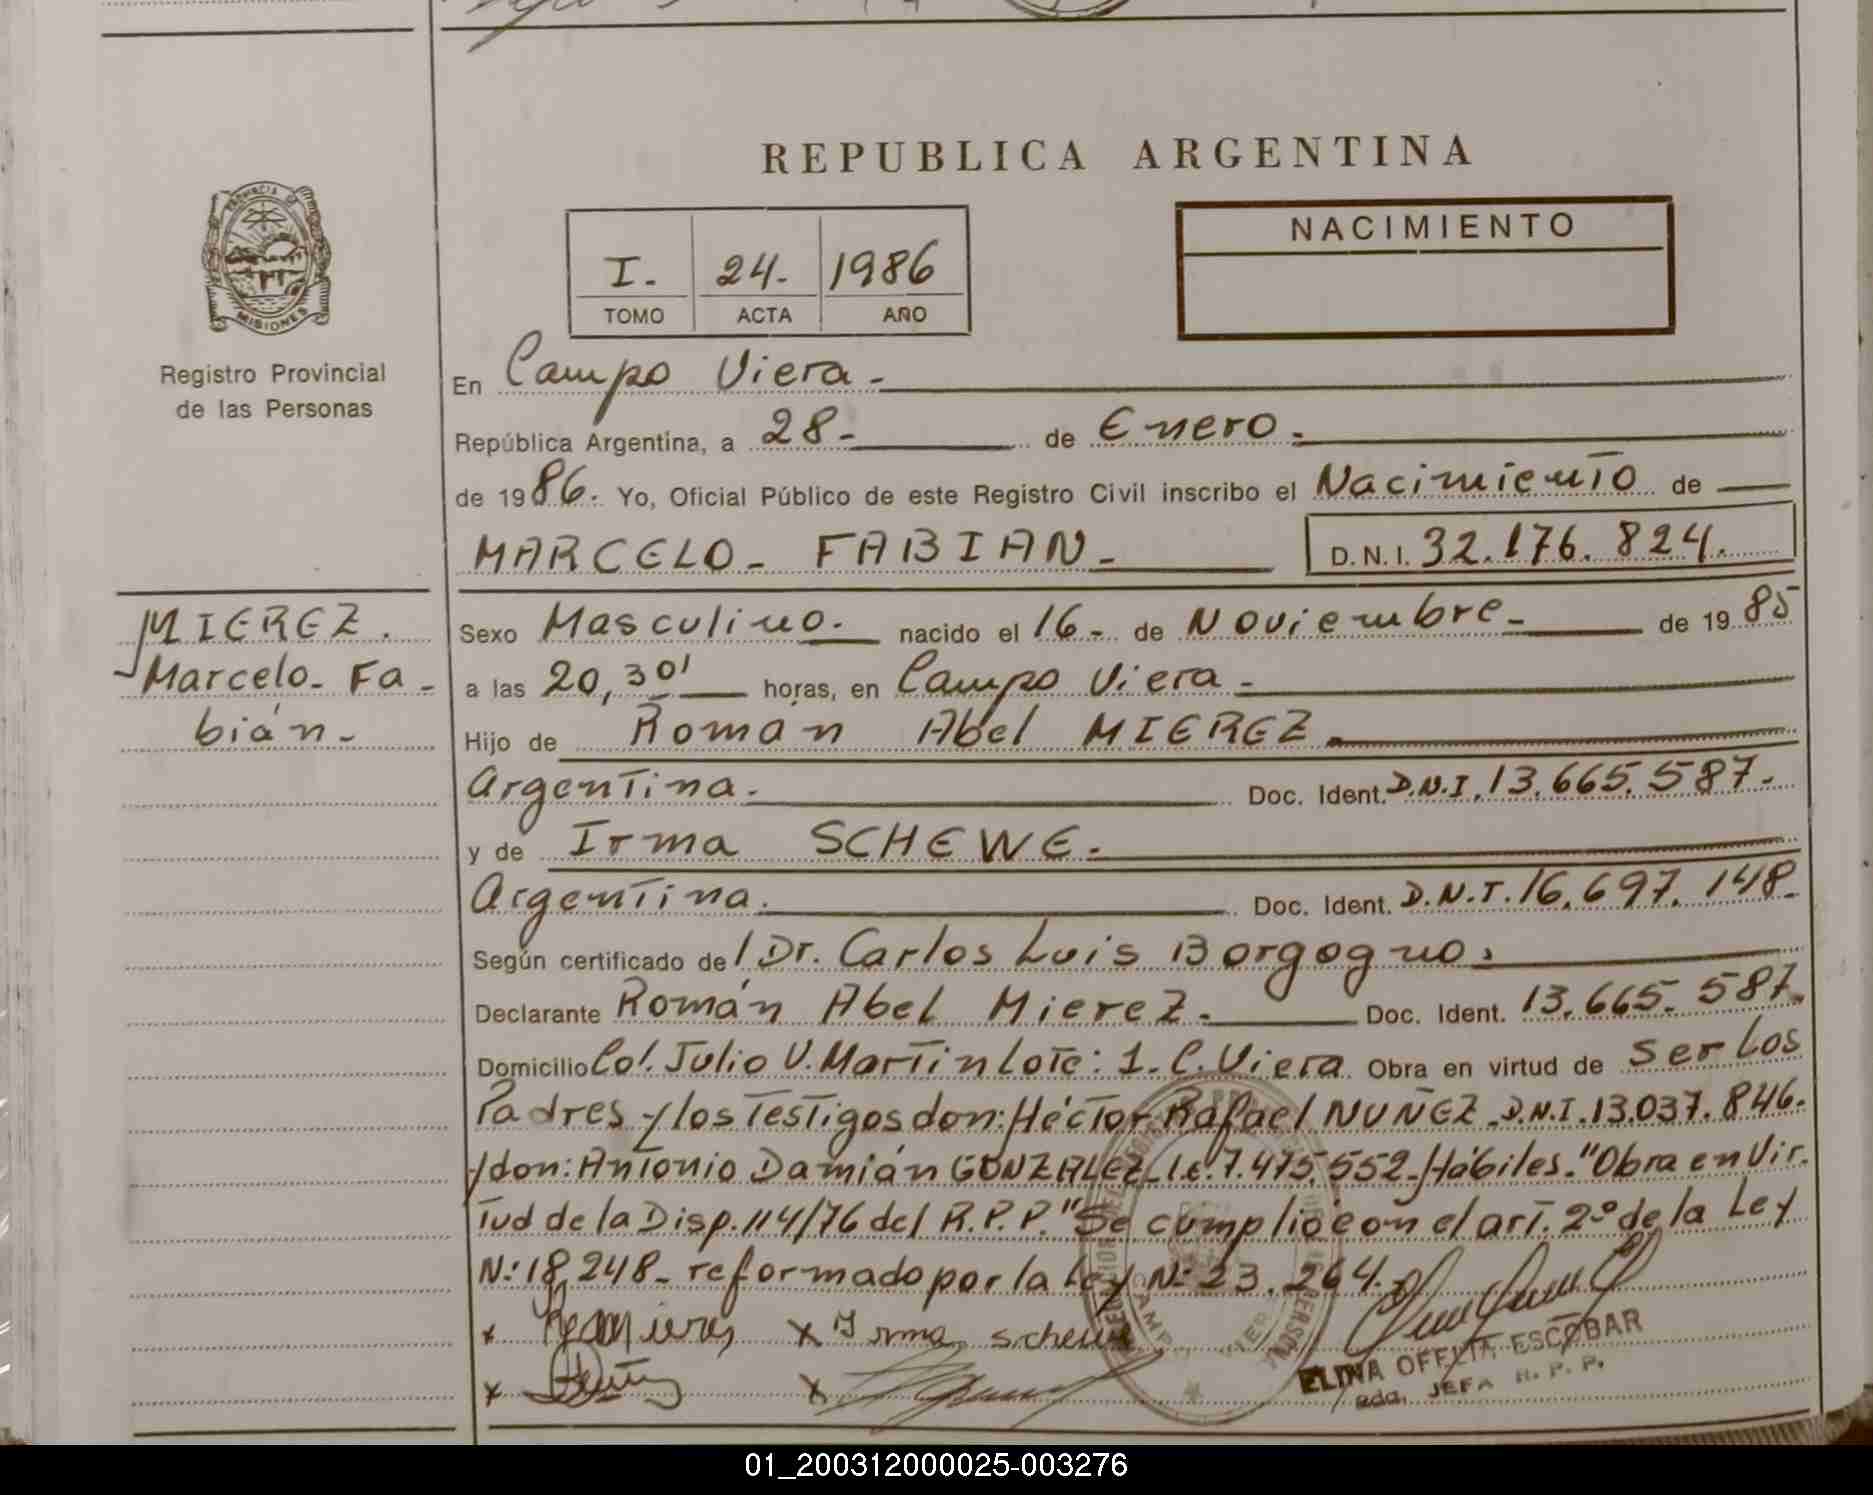 REPUBLICA ARGENTINA
PROVINCIA
MISIONES
Registro Provincial
de las Personas
I. 24. 1986
TOMO ACTA AÑO
NACIMIENTO
En Campo Viera.
República Argentina, a 28- de Enero.
de 1986. Yo, Oficial Público de este Registro Civil inscribo el Nacimiento de
MARCELO- FABIAN- D.N.I. 32.176.824.
MIEREZ.
Marcelo- Fa-
bián-
Sexo Masculino. nacido el 16- de Noviembre- de 1985
a las 20,30' horas, en Campo Viera-
Hijo de Román Abel MIEREZ.
Argentina. Doc. Ident. D.N.I. 13.665.587-
y de Irma SCHEWE.
Argentina. Doc. Ident. D.N.I. 16.697.148-
Según certificado del Dr. Carlos Luis Borgogno.
Declarante Román Abel Mierez. Doc. Ident. 13.665.587.
Domicilio Col. Julio U. Martin Lote: 1. C. Viera Obra en virtud de ser los
Padres y los Testigos don: Héctor Rafael NUÑEZ. D.N.I. 13.037.846.
y don: Antonio Damián GONZALEZ. L.E. 7.475.552- Hábiles. "Obra en Vir-
tud de la Disp. 114/76 del R.P.P." Se cumplió con el art. 2º de la Ley
N: 18.248- reformado por la Ley N: 23.264.
x x Irma schewe
x x
ELINA OFELIA ESCOBAR
JEFA R.P.P.
01_200312000025-003276